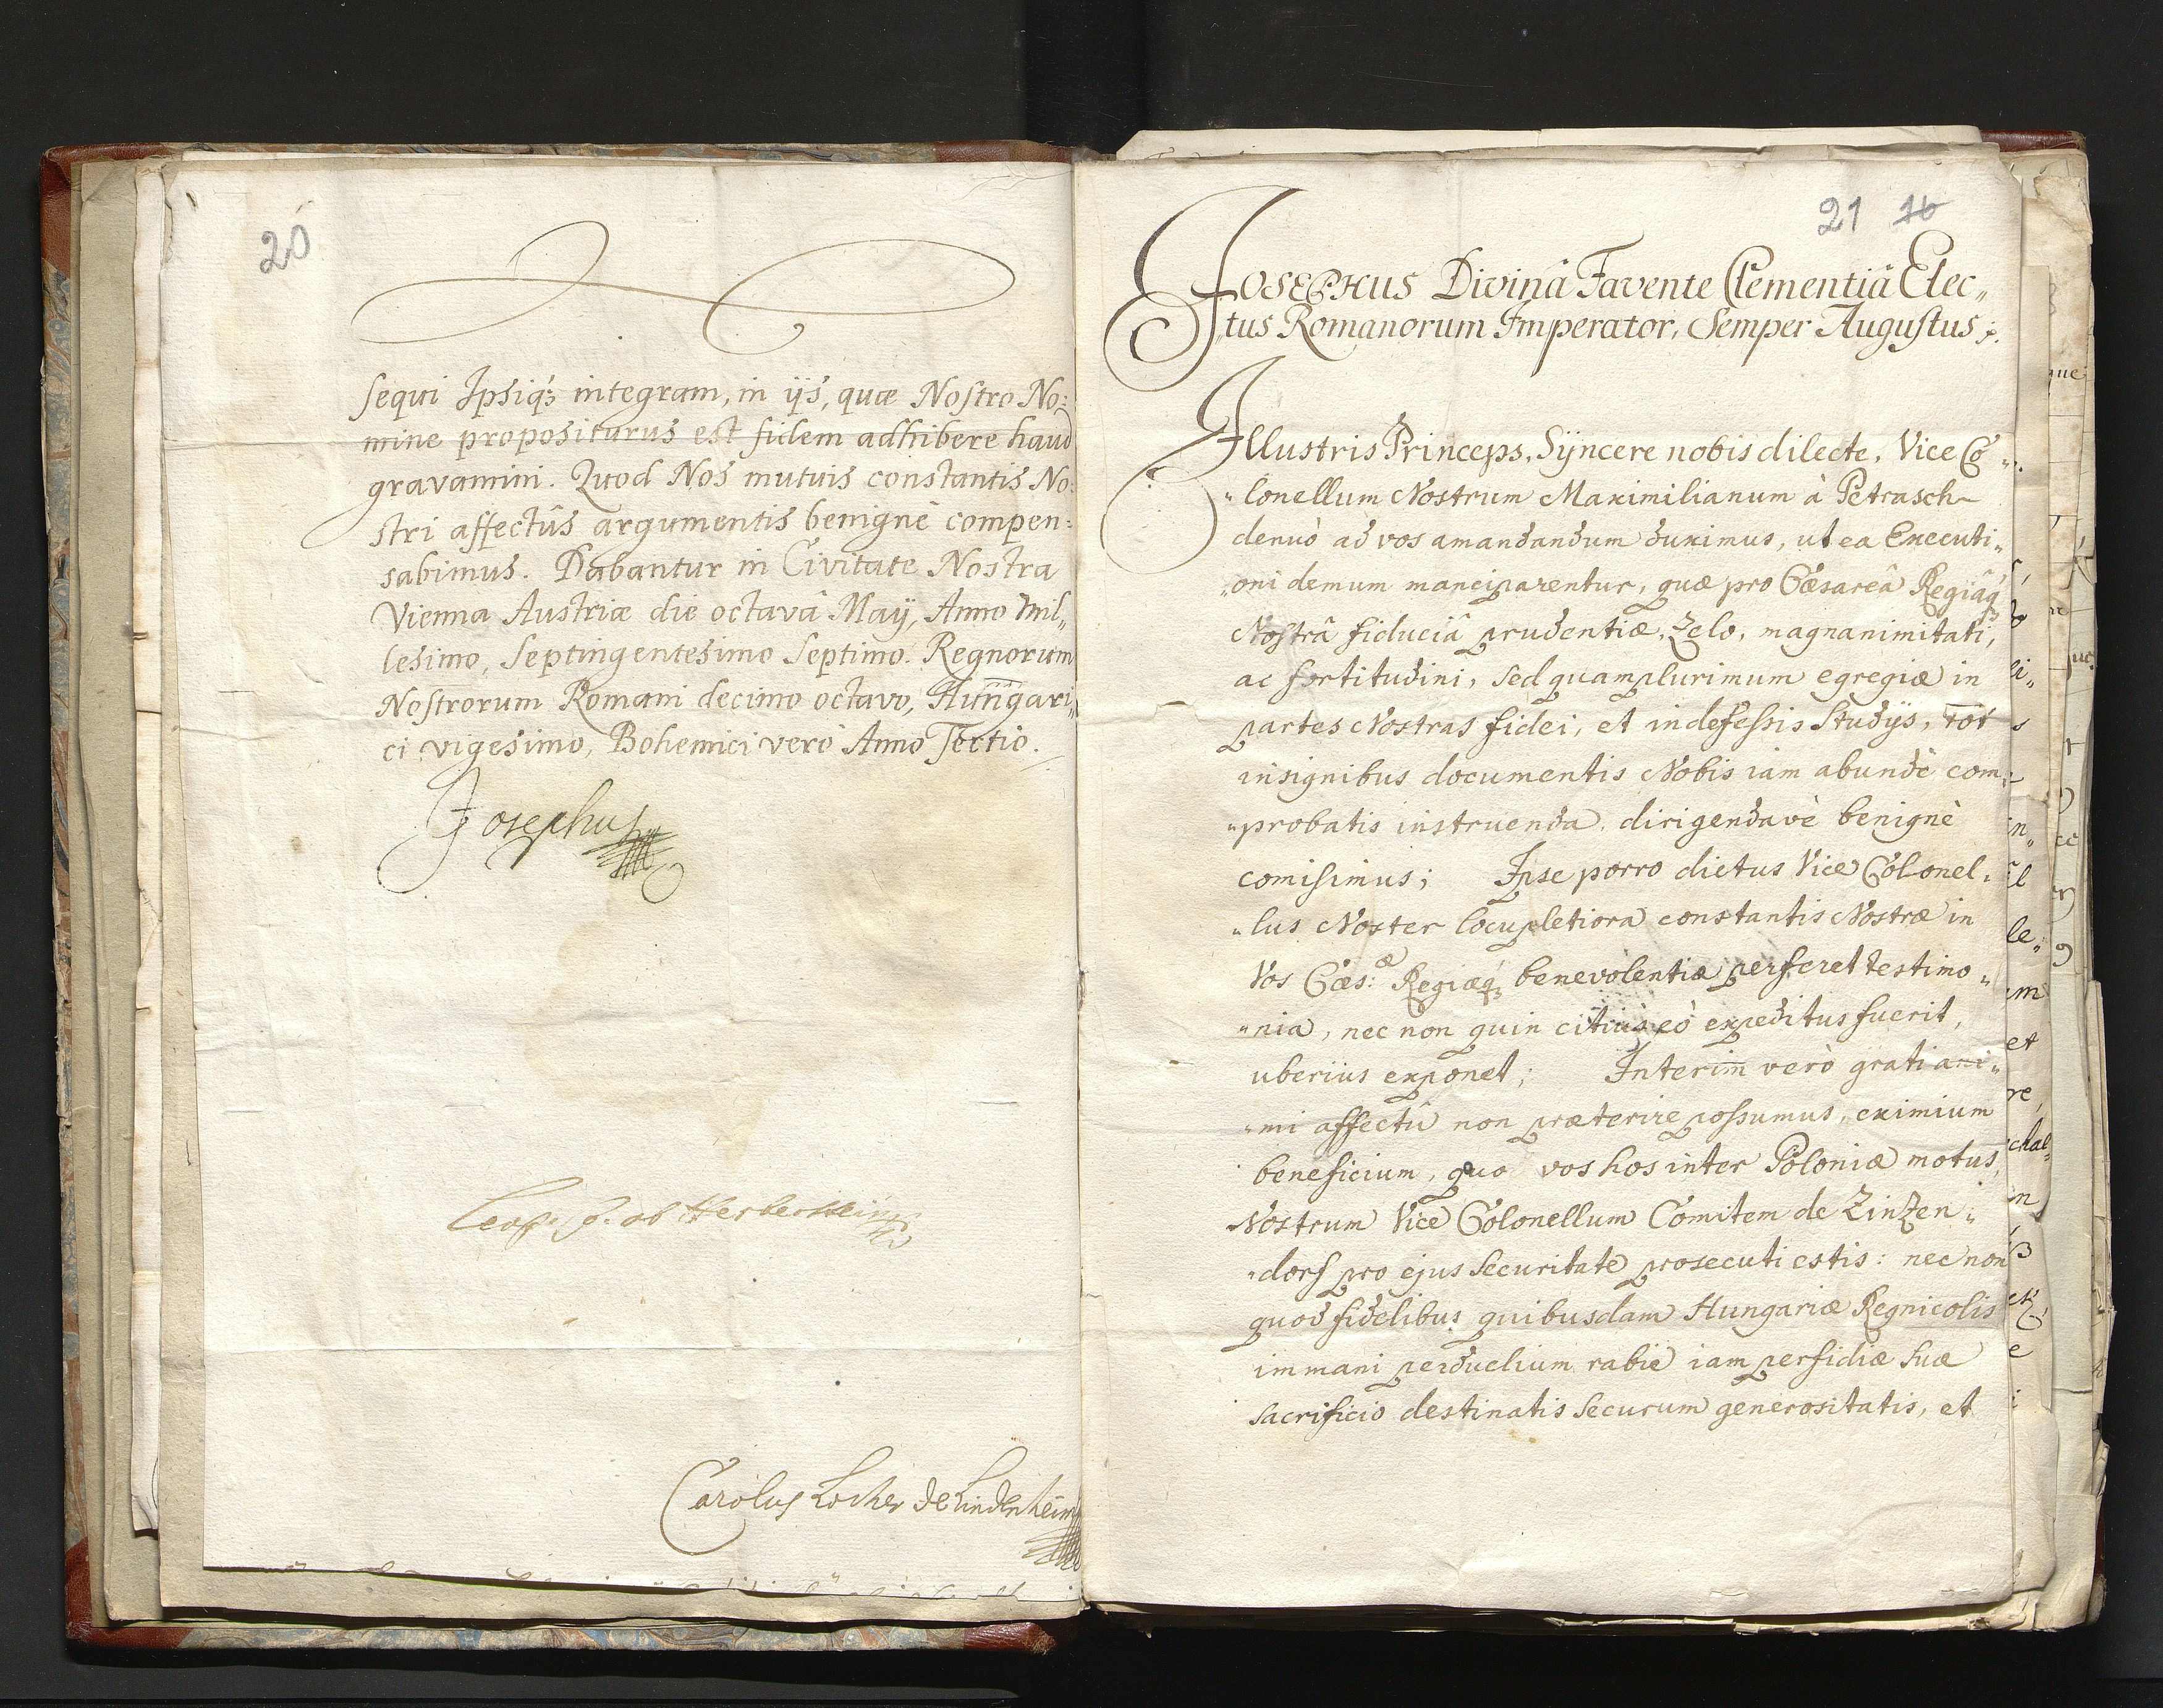 20
sequi Ipsiq́ꝫ integram, in ijs, quæ Nostro No:
mine propositurus est fidem adhibere haud
gravamini. Quod Nos mutuis constantis No:
stri affectûs argumentis benignè compen:
sabimus. Dabantur in Civitate Nostra
Vienna Austriæ die octavâ Maÿ, Anno Mil„
lesimo, Septingentesimo Septimo. Regnorum
Nostrorum Romani decimo octavo, Hungari„
ci vigesimo, Bohemici verò Anno Tertio.
Josephus
Leop. ab Herberstein
Carolus Locher de Lindenheim
21 16
JOSEPHUS Divinâ Favente Clementiâ Elec„
tus Romanorum Imperator, Semper Augustus
Illustris Princeps, Sÿncere nobis dilecte, Vice Co„
„lonellum Nostrum Maximilianum à Petrasch
denuò ad vos amandandum duximus, ut ea Executi„
„oni demum manciparentur, quæ pro Cæsareâ Regiâq́ꝫ
Nostrâ fiduciâ prudentiæ, Zelo, magnanimitati,
ac fortitudini, sed quamplurimum egregiæ in
partes Nostras fidei, et indefessis Studijs, tot
insignibus documentis Nobis iam abundè com„
„probatis instruenda, dirigendavè benignè
comisimus; Ipse porro dictus Vice Colonel„
„lus Noster locupletiora constantis Nostræ in
Vos Cæs:æ Regiæq́ꝫ benevolentiæ perferet testimo„
„nia, nec non quin citius eò expeditus fuerit,
uberius exponet; Interim̅ verò grati ani„
„mi affectû non præterire possumus, eximium
beneficium, quo vos hos inter Poloniæ motus,
Nostrum Vice Colonellum Comitem de Zinzen„
„dorf pro ejus Securitate prosecuti estis: nec non
quod fidelibus quibusdam Hungariæ Regnicolis
immani perduelium rabie iam perfidiæ suæ
sacrificio destinatis Securum generositatis, et